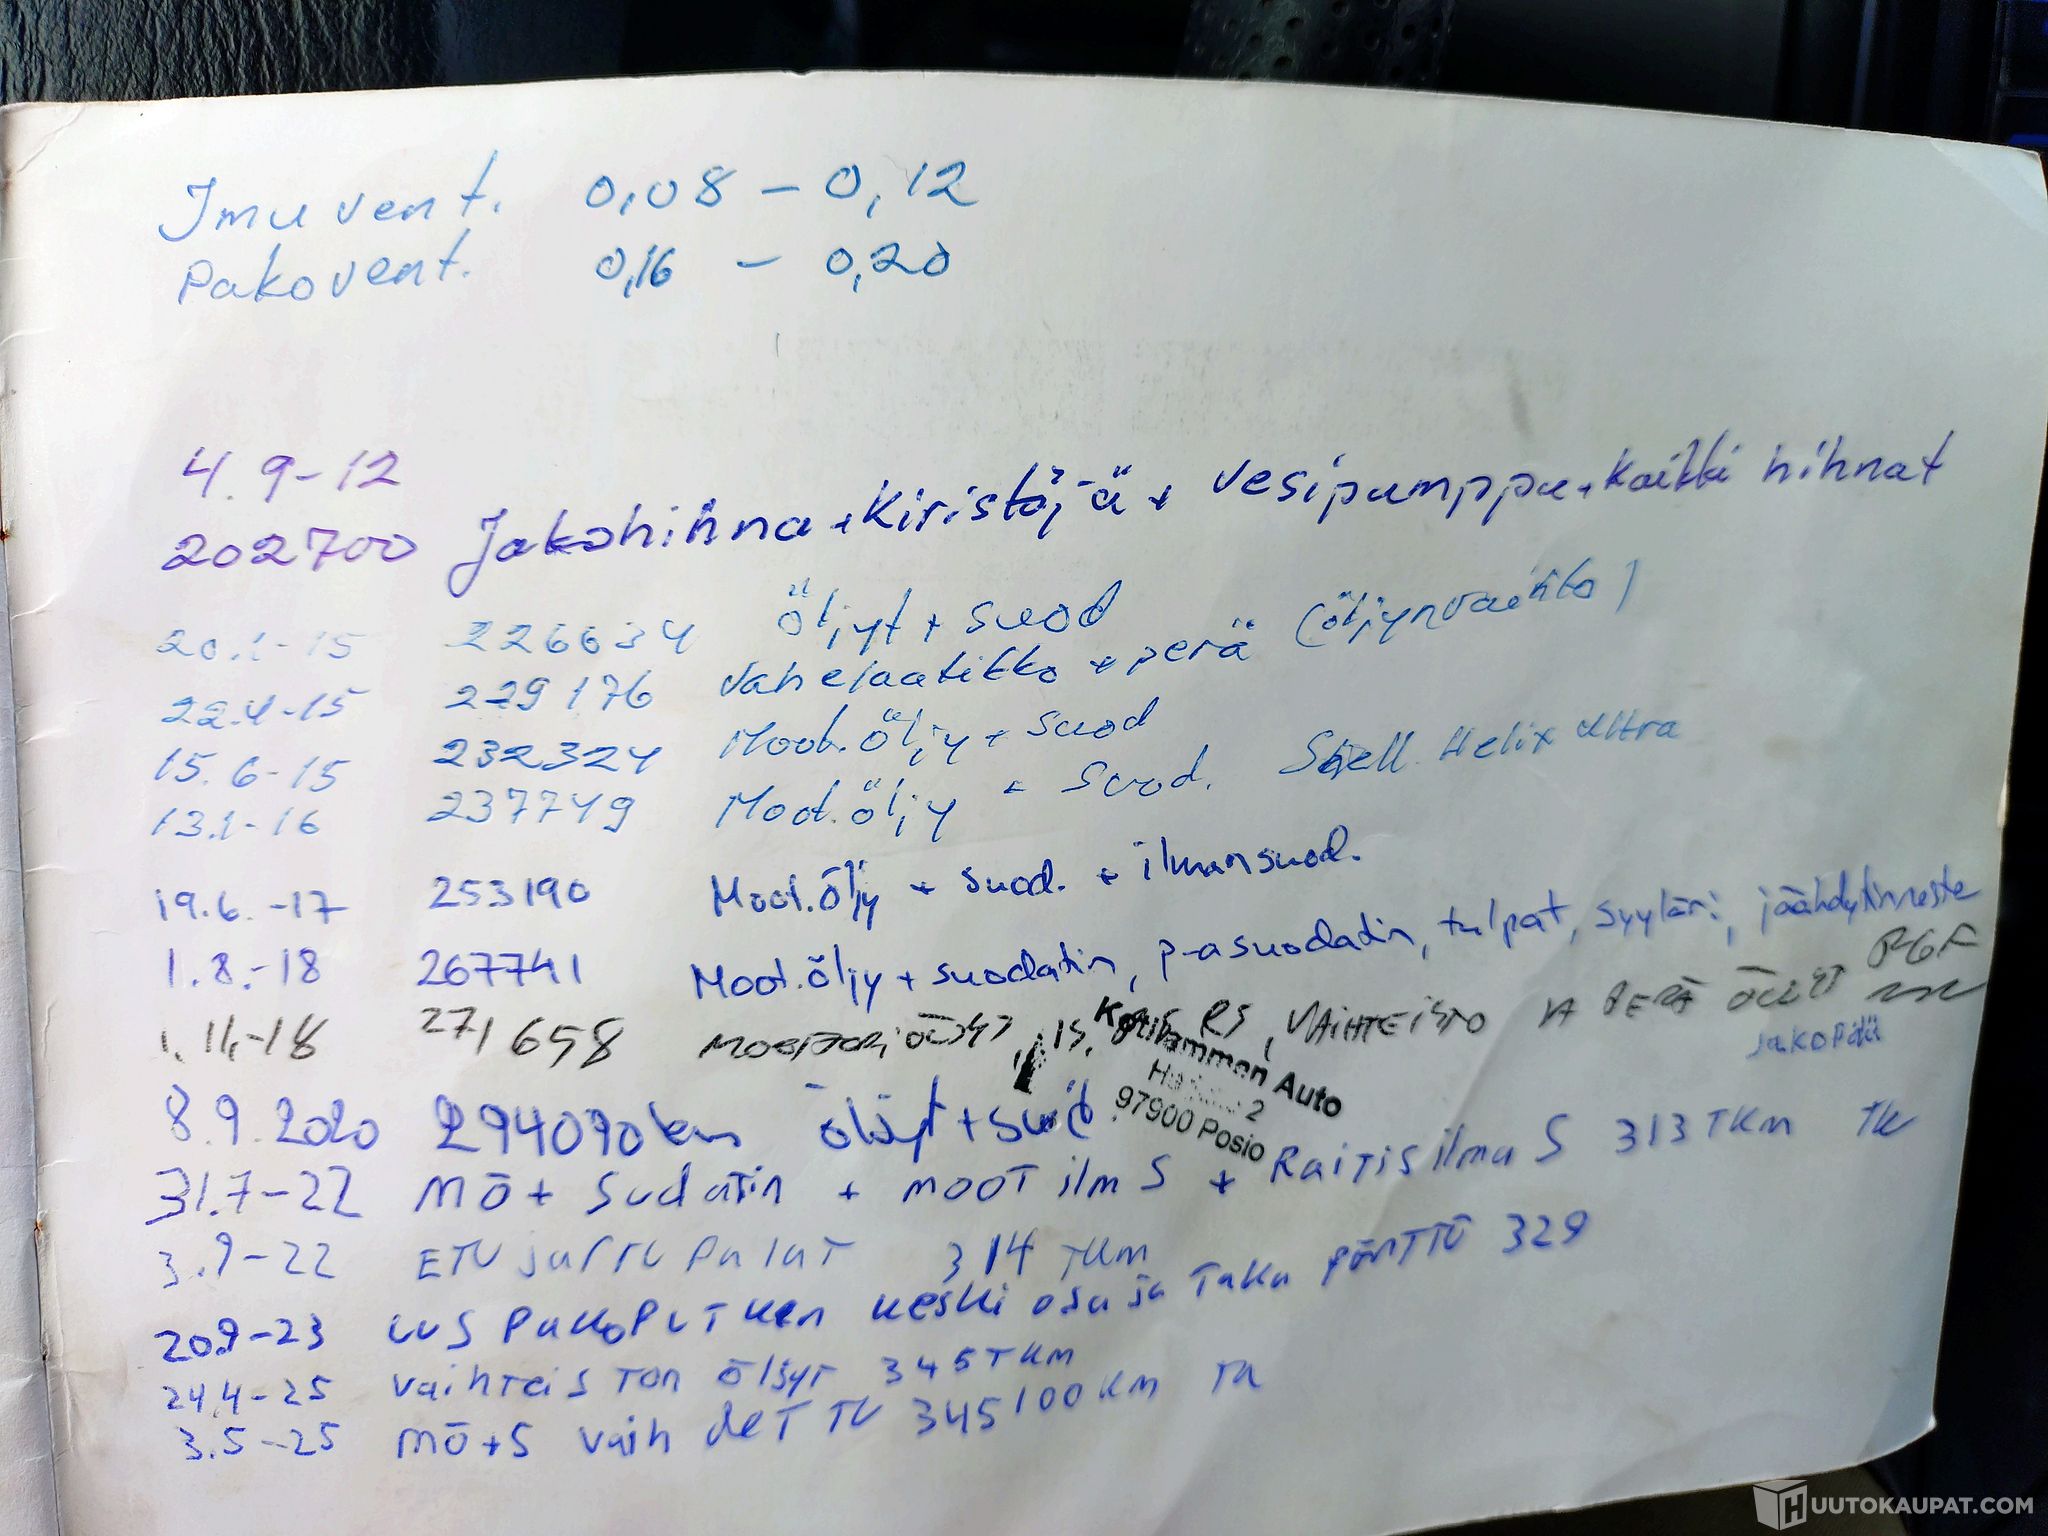 Imuvent. 0,08 - 0,12
Pakovent. 0,16 - 0,20
4.9-12
202700 Jakohihna + Kiristäjä + vesipumppu + kaikki hihnat
20.1-15 226634 öljyt + suod
22.4-15 229176 Vahelaatikko + perä (öljynvaihto)
15.6-15 232324 Moot.öljy + suod
13.1-16 237749 Moot.öljy + Suod. Shell Helix ultra
19.6.-17 253190 Moot.öljy + suod. + ilmansuod.
1.8.-18 267741 Moot.öljy + suodatin, p-asuodatin, tulpat, syyläri, jäähdytinneste
1.11.-18 271658 VAIHTEISTO JA PERÄ ÖLJYT
Jakopää
Kotilammen Auto
2
97900 Posio
8.9.2020 294090 km öljyt + suod
31.7-22 MÖ + Sudatin + MOOT ilm S + Raitis ilma S 313 TKM TK
3.9-22 ETU jarru palat 314 TKM
20.9-23 UUS PakoPutken keski osa ja Taka pönttö 329
24.4-25 vaihteiston öljyt 345 TKM
3.5-25 MÖ+S vaih deTTU 345100 KM TK
HUUTOKAUPAT.COM